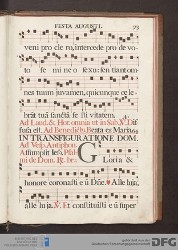 FESTA AUGUSTI. 73
veni pro cle ro, intercede pro devo-
to femineo sexu: sentiant om-
nes tuum juvamen, quicunque ce le-
brant tuā sanctā fe sti vitatem.
Ad Laud. & Hor. omnia ut in
fusa est. Ad Benedict. Beata es Maria
IN TRANSFIGURATIONE DOM.
Ad Vesp. Antiphon.
Assumpsit Jesus. Psal-
mi de Dom. G
loria &
honore coronasti e u Dñe. Alle luia,
alle lu ja. Et constituisti eū super
DFG